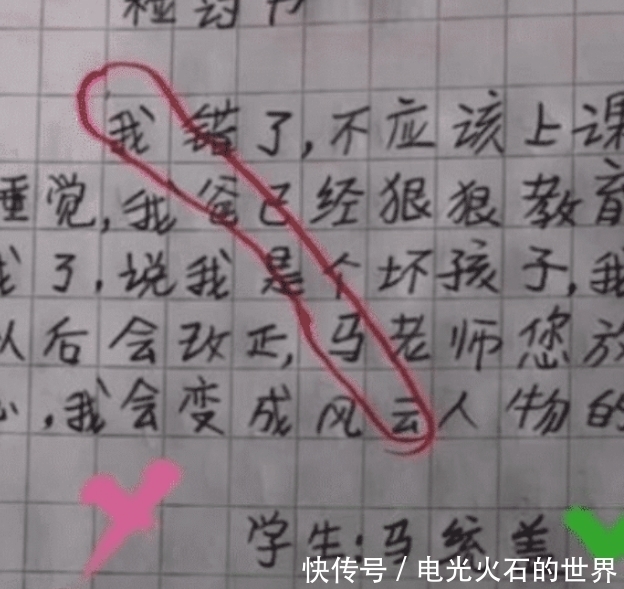 检讨书
我错了,不应该上课
睡觉,我爸已经狠狠教育
我了,说我是个坏孩子,我
以后会改正,马老师您放
心,我会变成风云人物的
学生:马
快传号/电光火石的世界